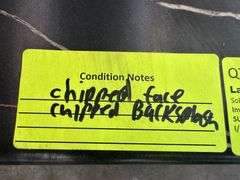 Condition Notes
chipped face
chipped Backsplash
QT
La
Sol